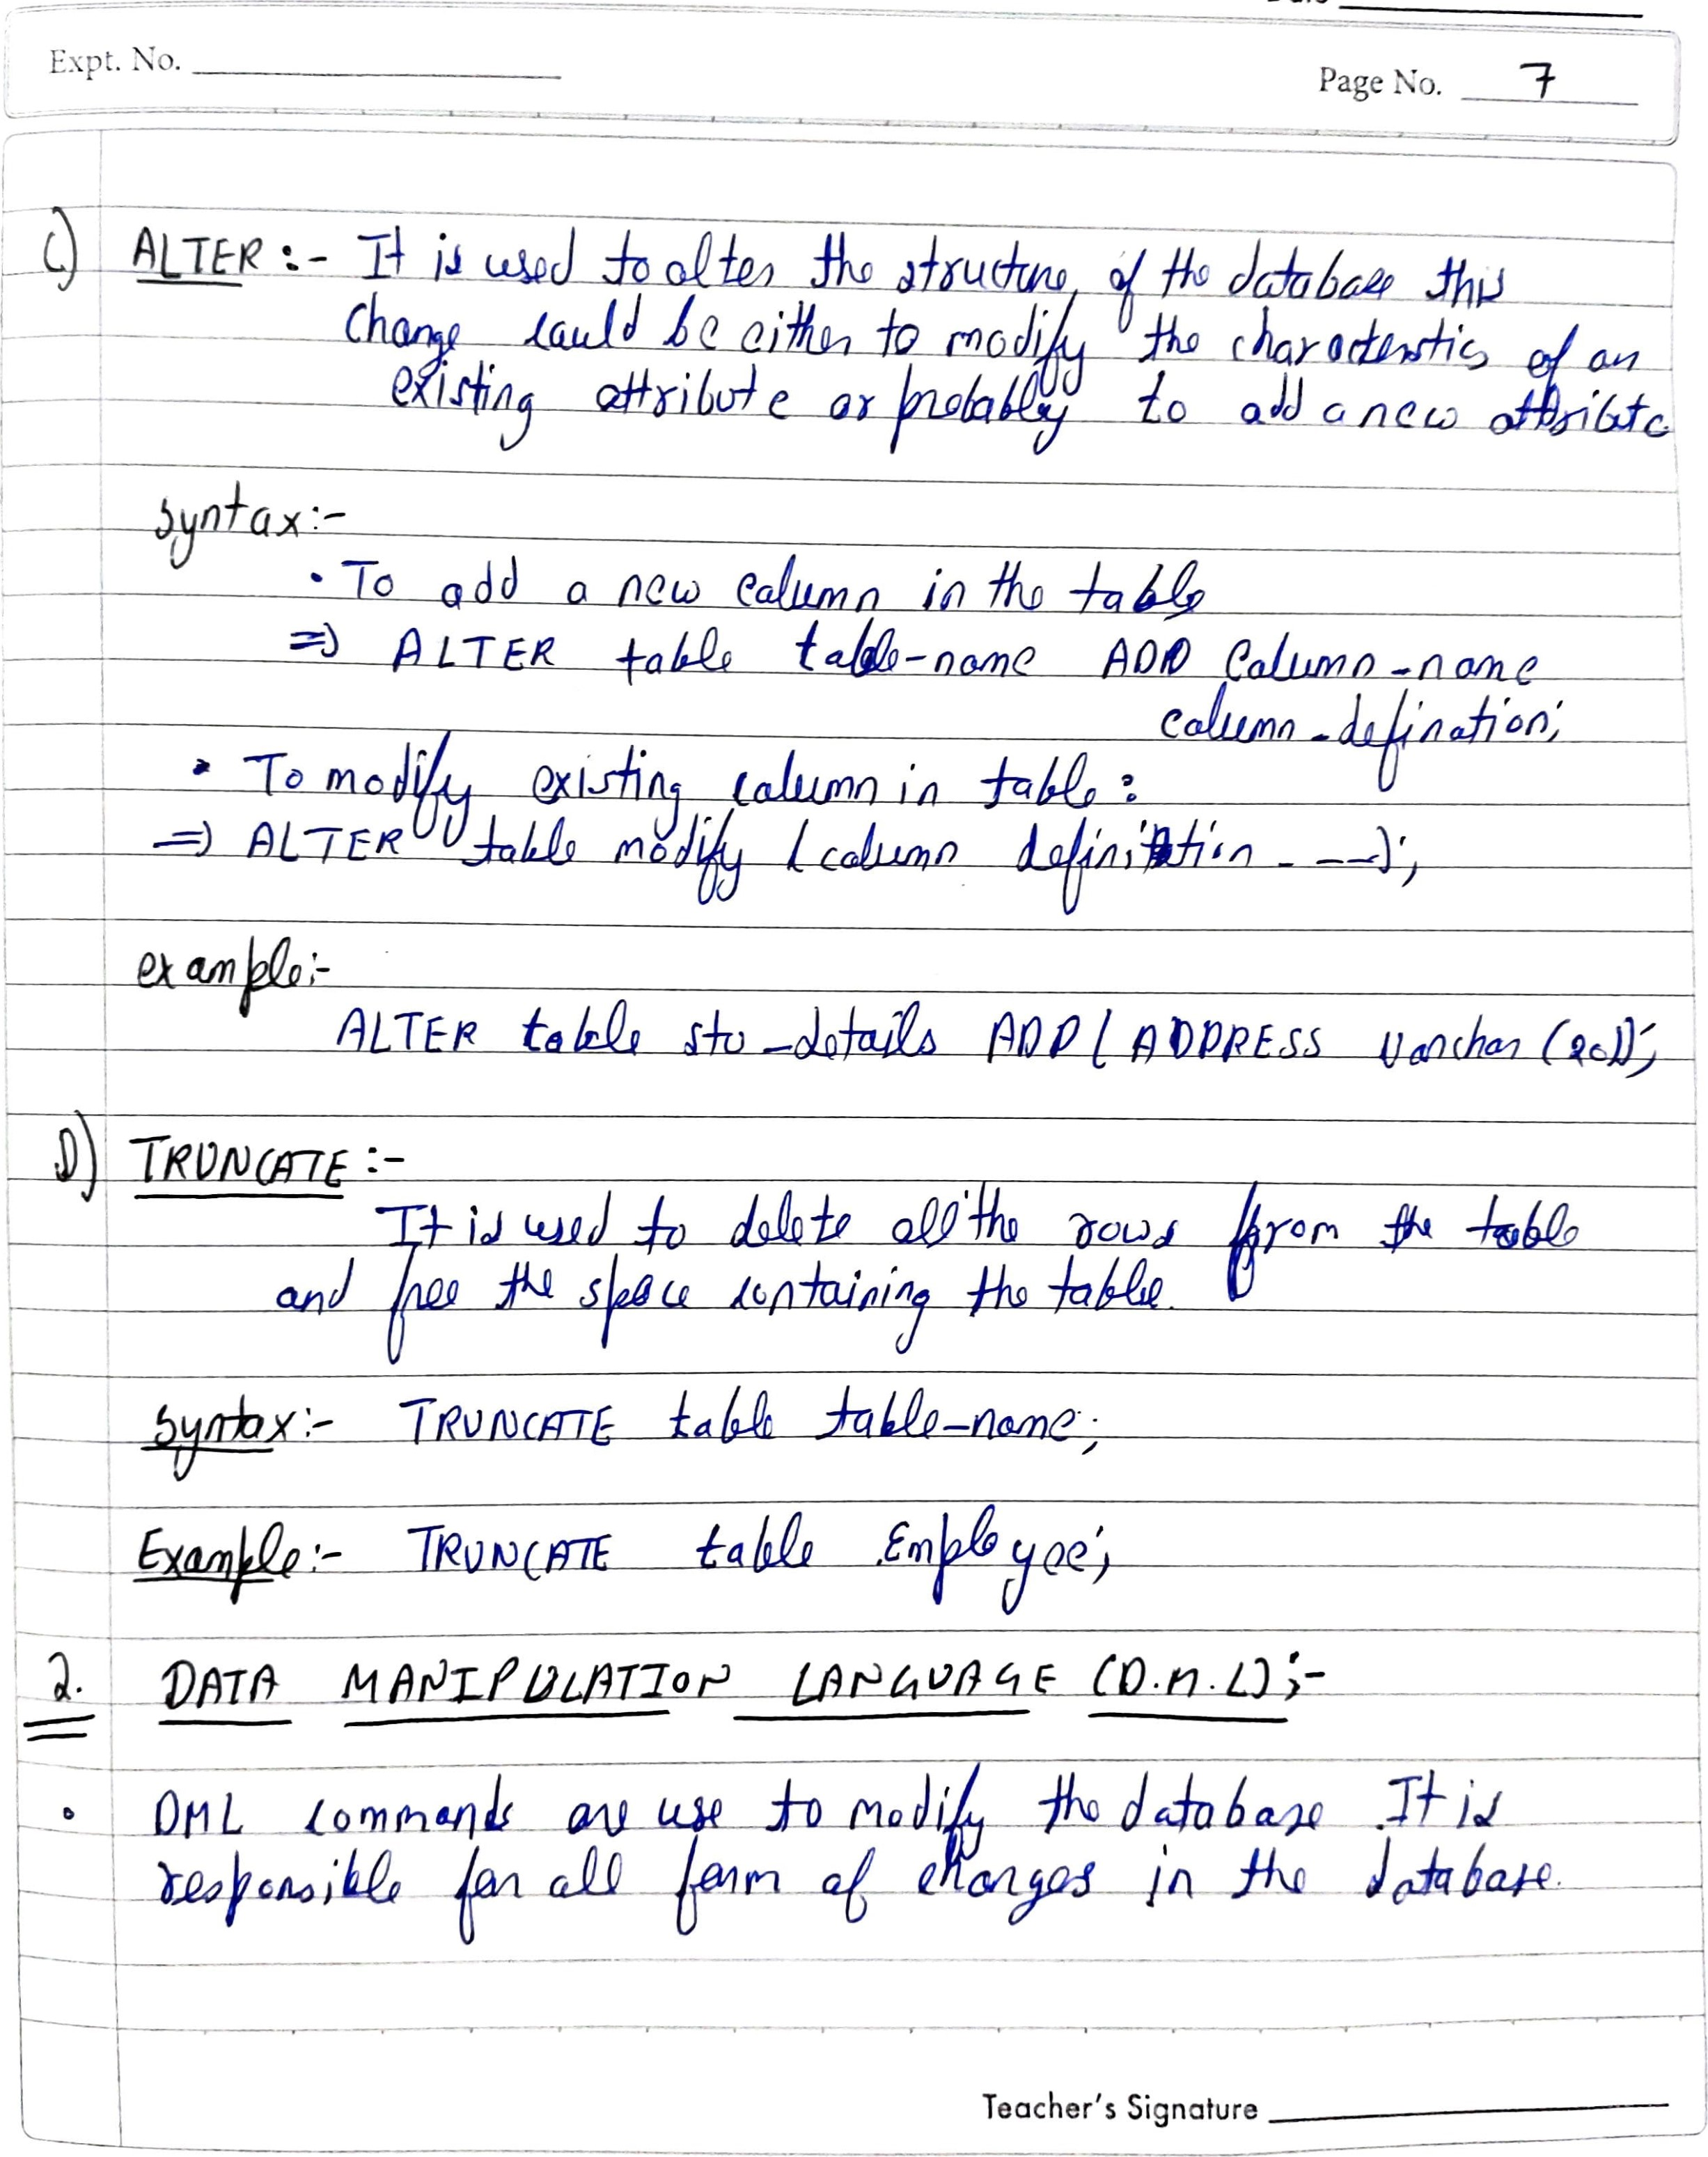 Expt. No.
Page No. 7
C) ALTER :- It is used to alter the structure of the database this
change could be either to modify the characterstics of an
existing attribute or probably to add a new attribute
syntax:-
• To add a new column in the table
=) ALTER table table-name ADD Column-name
column-defination;
• To modify existing column in table:
=) ALTER table modify (column definition - --);
example:-
ALTER table stu-details ADD( ADDRESS Varchar (20));
D) TRUNCATE :-
It is used to delete all the rows from the table
and free the space containing the table.
Syntax:- TRUNCATE table table-name;
Example:- TRUNCATE table Employee;
2. DATA MANIPULATION LANGUAGE (D.M.L);-
• DML commands are use to modify the database. It is
responsible for all form of changes in the database.
Teacher's Signature